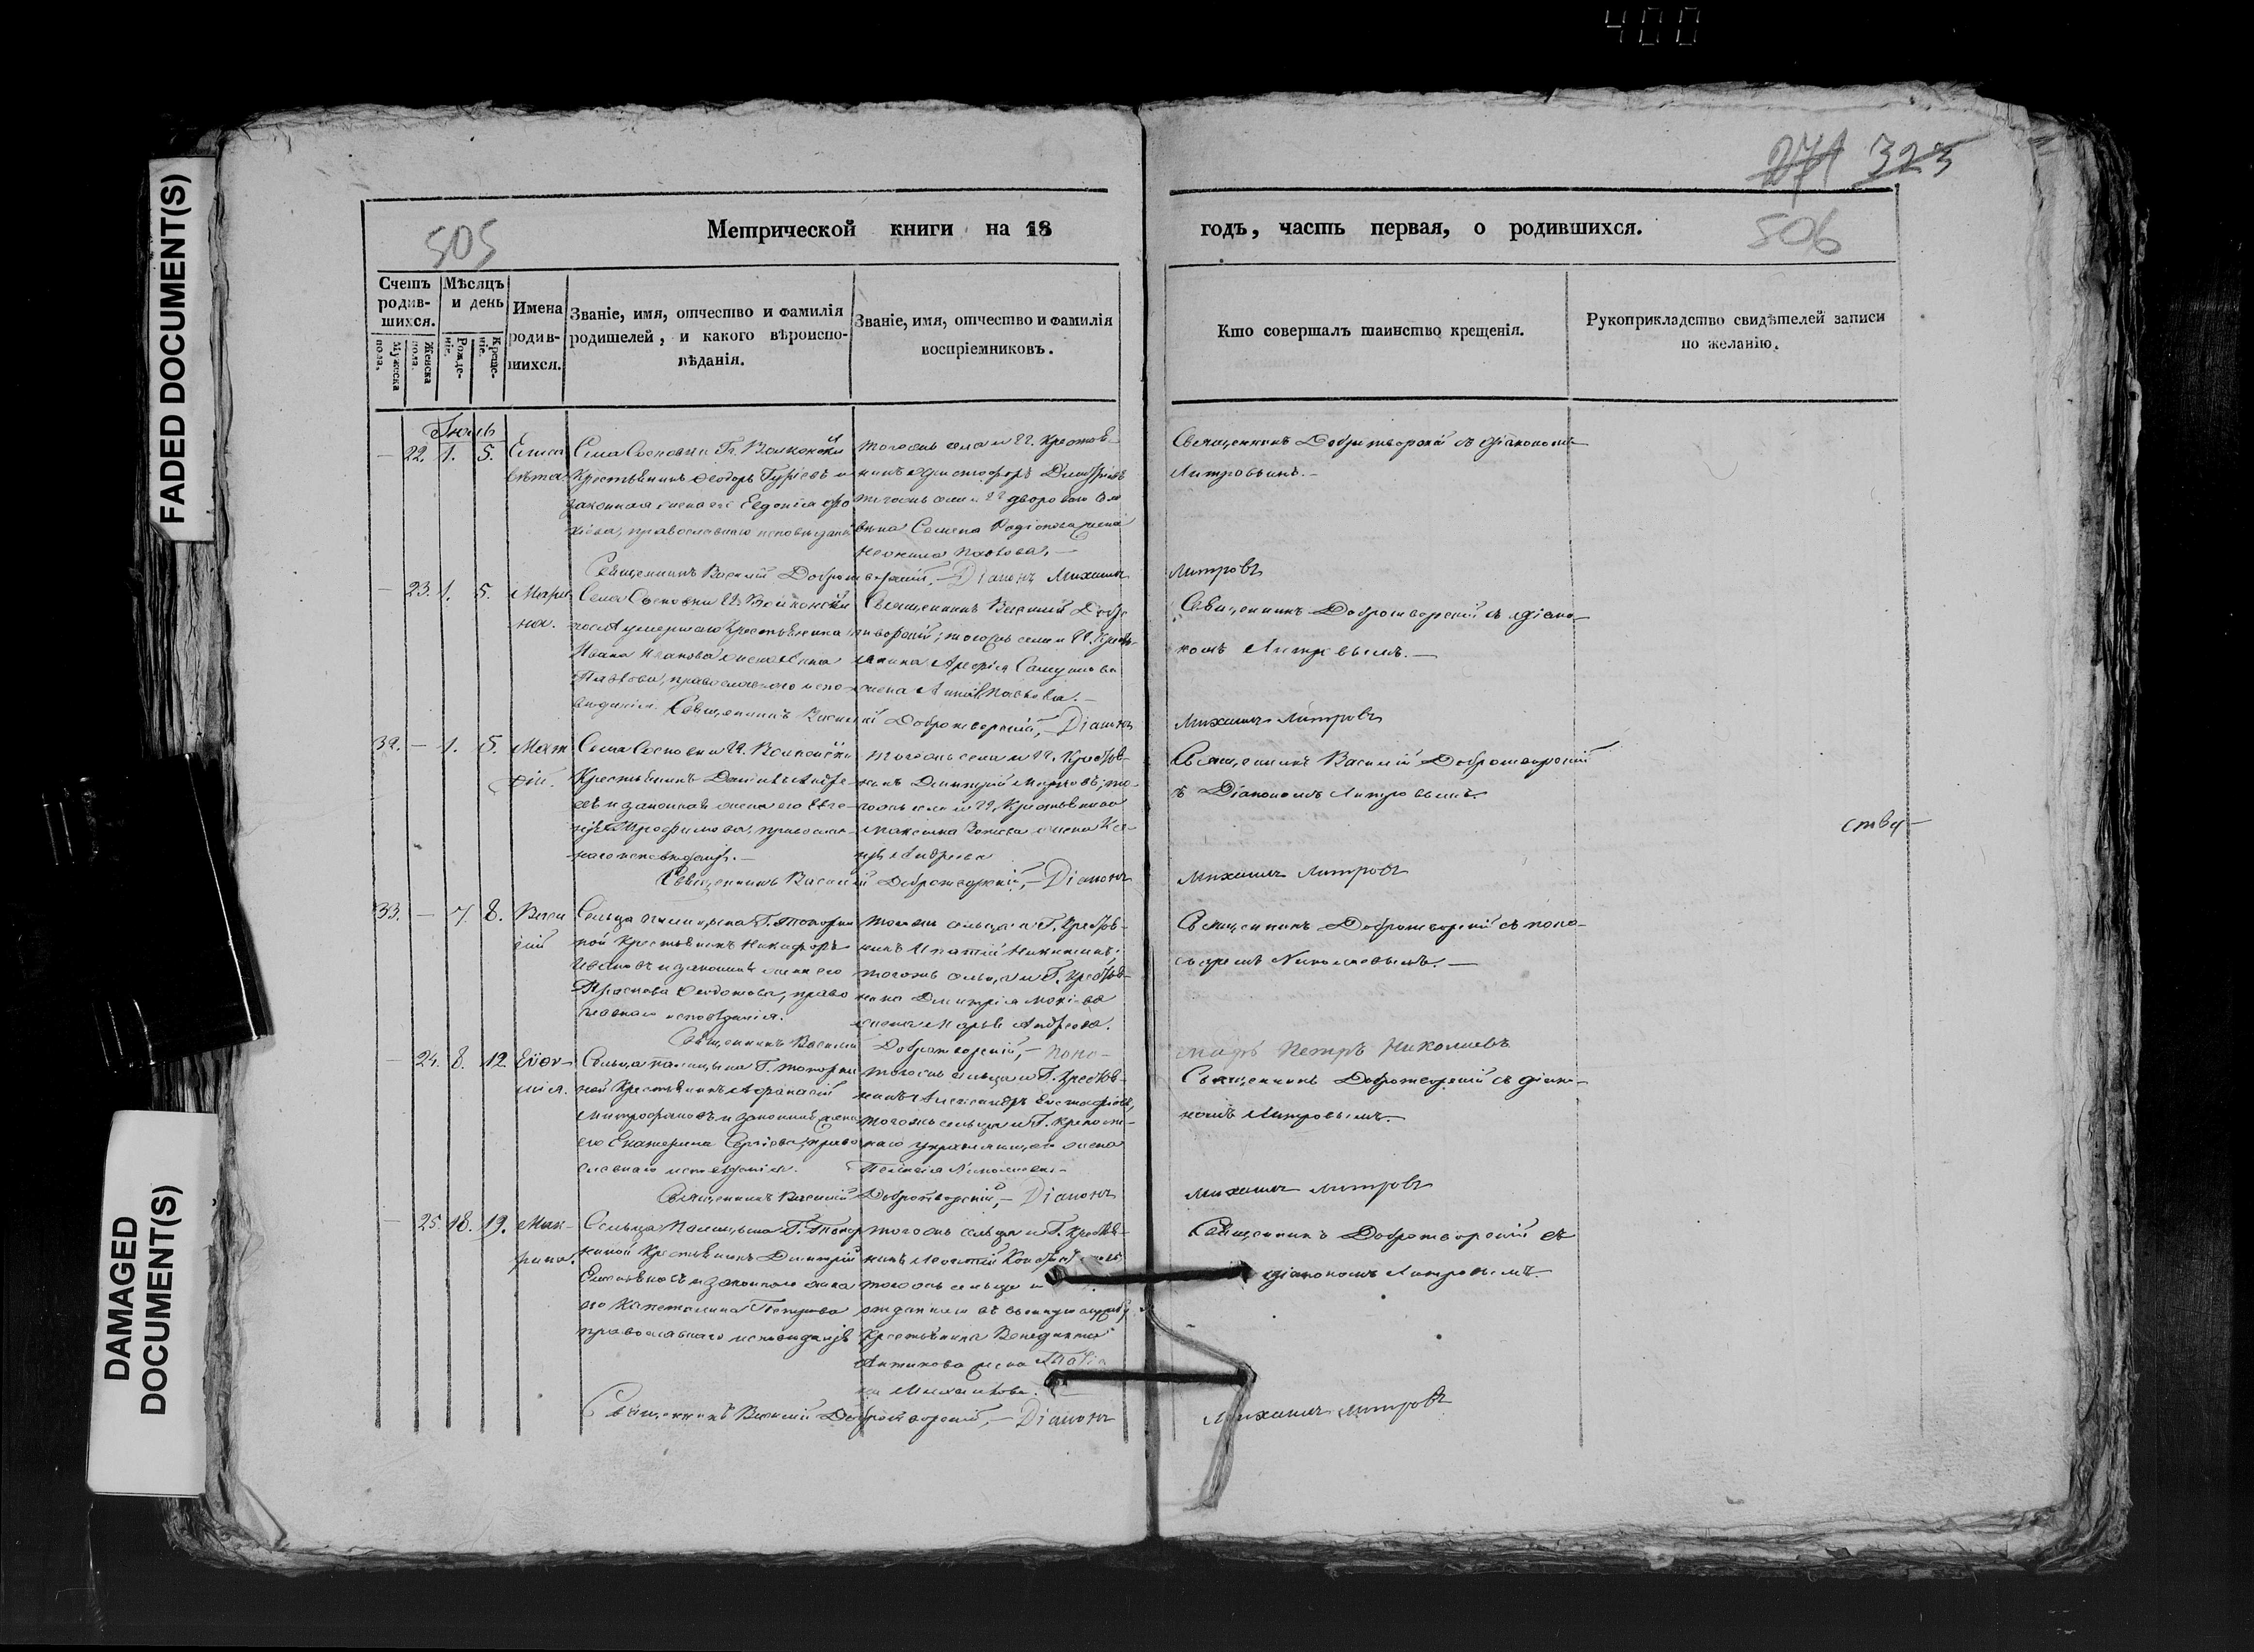 400
FADED DOCUMENT(S)
DAMAGED
DOCUMENT(S)
271 323
505
Метрической книги на 18
годъ, часть первая, о родившихся.
506
Счетъ родив-шихся.
Мужеска пола.
Женска пола.
Мѣсяцъ и день
Рожде-ніе.
Креще-ніе.
Имена родив-шихся.
Званіе, имя, отчество и фамилія
родителей, и какого вѣроиспо-
вѣданія.
Званіе, имя, отчество и фамилія
воспріемниковъ.
Кто совершалъ таинство крещенія.
Рукоприкладство свидѣтелей записи
по желанію.
Іюль
— 22. 1. 5. Елиса
вѣта.
Села Сосновки Гг. Волконски
Крестьянинъ Ѳеодоръ Гурьевъ и
законная жена его Евдокія
православнаго исповѣданія
тогожъ села и гг. крестья-
нинъ Христофоръ Димитріевъ
тогожъ села и гг дворового
Семена Родіонова жена
Неонила Павлова. —
Священникъ Добротворской съ діакономъ
Митровымъ. —
Священникъ Василій Добротворскій, — Діаконъ Михаилъ
Митровъ
— 23. 1. 5. Мари
на.
Села Сосновки гг. Волконски
послѣ умершаго Крестьянина
Ивана Иванова жена
Павлова, православнаго испо-
вѣданія.
Священникъ Василій Добро
творскій; тогожъ села и гг. Крестья-
нина Арефія Самуилова
жена Анна Павлова. —
Священникъ Добротворскій съ діако-
номъ Митровымъ. —
Священникъ Василій Добротворскій, Діаконъ
Михаилъ Митровъ
32. — 1. 5. Мат
ѳій.
Села Сосновки гг. Волконски
Крестьянинъ Даніилъ Андре-
евъ и законная жена его Евге-
нія Трофимова, православ-
наго исповѣданія. —
тогожъ села и гг. Крестья-
нинъ Димитрій Марковъ; то-
гожъ села и гг. Крестьянина
Максима жена Ксе-
нія Андреева
Священникъ Василій Добротворскій
съ Діакономъ Митровымъ.
ству —
Священникъ Василій Добротворскій, — Діаконъ
Михаилъ Митровъ
33. — 7. 8. Васи
лій
Сельца Палицына Г. Топорни
ной Крестьянинъ Никифоръ
Ивановъ и законная жена его
Прасковья Ѳеодотова, право
славнаго исповѣданія.
тогожъ сельца и Г. Крестья-
нинъ Ипатій Никитинъ;
тогожъ сельца и Г. Крестья-
нина Димитрія
жена Марья Андреева.
Священникъ Добротворскій съ поно-
маремъ Николаевымъ. —
Священникъ Василій Добротворскій, — Поно-
марь Петръ Николаевъ
— 24. 8. 12. Евѳи-
мія.
Сельца Палицына Г. Топорни
ной Крестьянинъ Афанасій
Митрофановъ и законная жена
его Екатерина Сергіева, право
славнаго исповѣданія.
тогожъ сельца и Г. Крестья-
нинъ Александръ Евстафіевъ,
тогожъ сельца и Г. крѣпост-
наго управляющаго жена
Пелагія Николаева. —
Священникъ Добротворскій съ діако-
номъ Митровымъ. —
Священникъ Василій Добротворскій, — Діаконъ
Михаилъ Митровъ
— 25. 18. 19. Мак-
рина.
Сельца Палицына Г. Топор
ниной Крестьянинъ Димитрій
и законная жена
его Капетолина Петрова
православнаго исповѣданія
тогожъ сельца и Г. Крестья-
нинъ Леонтій
тогожъ сельца и
отданнаго въ военную службу
Крестьянина Венедикта
Антипова жена
Михайлова. —
Священникъ Добротворскій съ
діакономъ Митровымъ.
Священникъ Василій Добротворскій, — Діаконъ
Михаилъ Митровъ